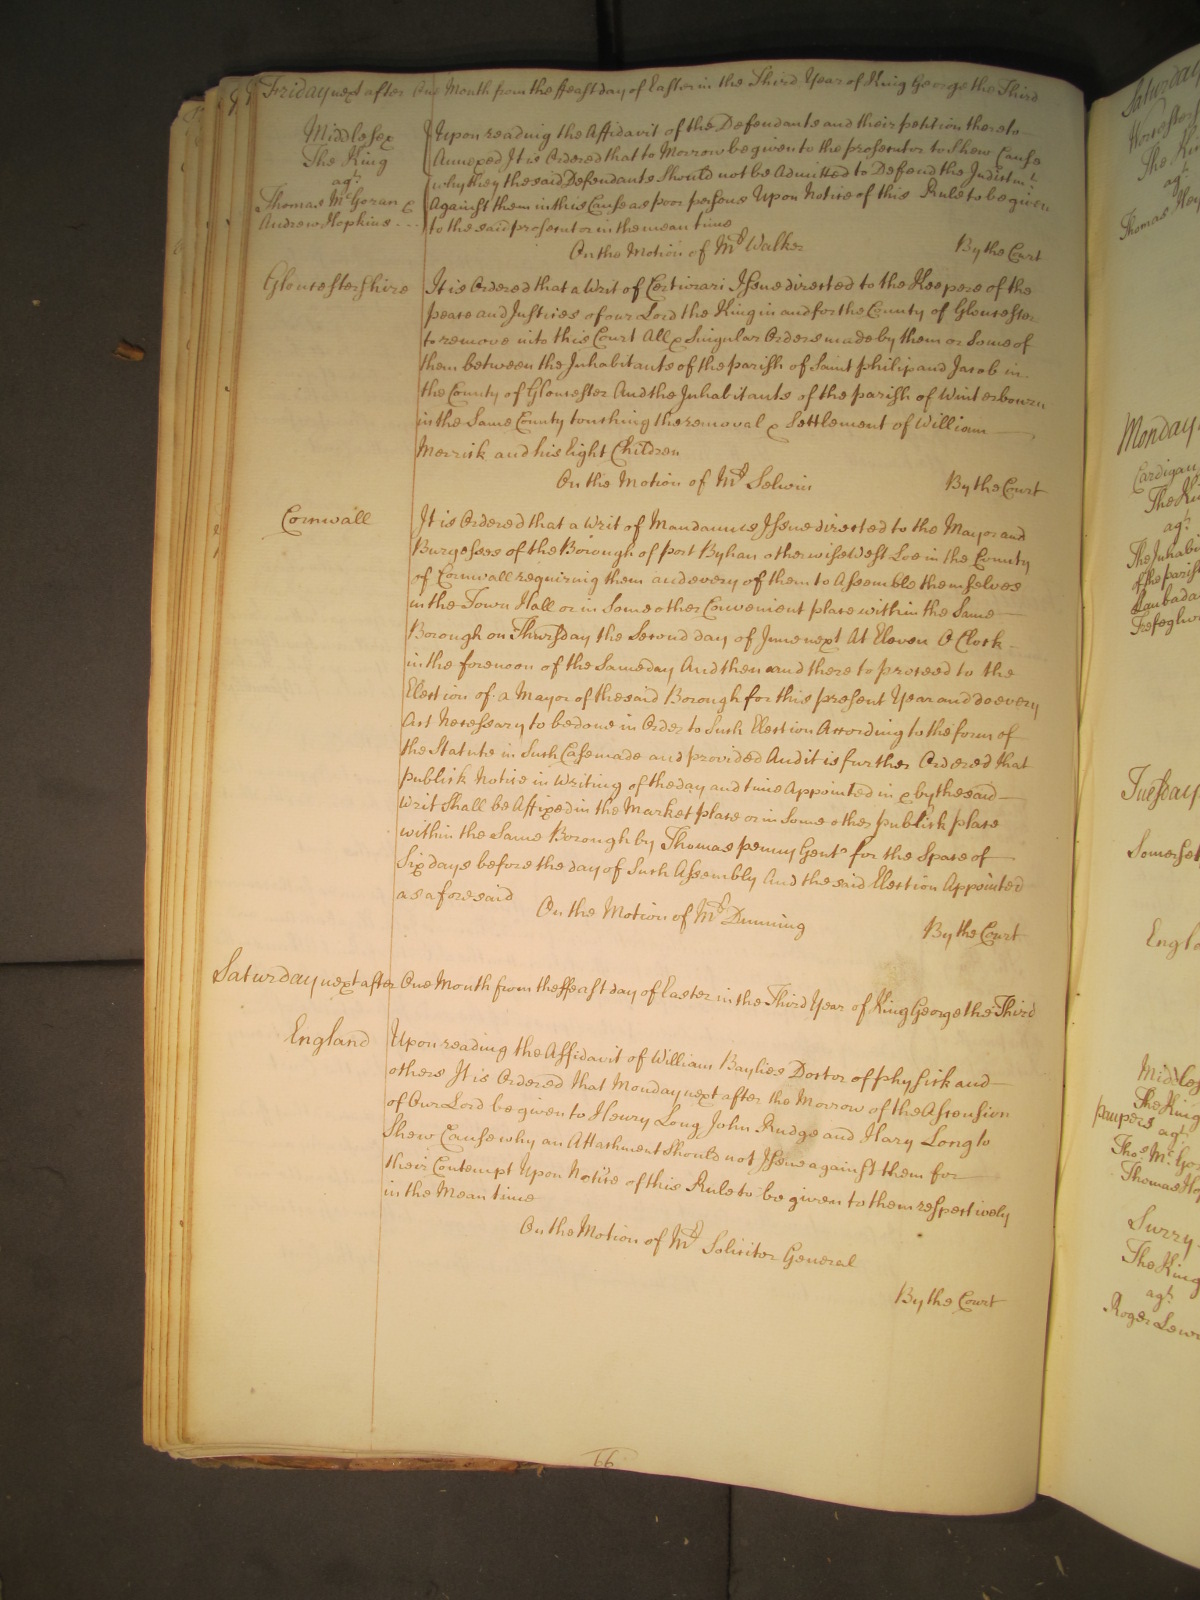 Friday next after One Month from the ffeast day of Easter in the Third Year of King George the Third
Middlesex
The King
agt.
Thomas McGoran &
Andrew Hopkins
Upon reading the Affidavit of the Defendants and their petition thereto
Annexed It is Ordered that to Morrow be given to the prosecutor to Shew Cause
why they the said Defendants Should not be Admitted to Defend the Indictmt.
Against them in this Cause as poor persons Upon Notice of this Rule to be given
to the said prosecutor in the mean time
On the Motion of Mr Walker By the Court
Gloucestershire
It is Ordered that a Writ of Certiorari Issue directed to the Keepers of the
peace and Justices of our Lord the King in and for the County of Gloucester
to remove into this Court All & Singular Orders made by them or Some of
them between the Inhabitants of the parish of Saint philip and Jacob in
the County of Gloucester And the Inhabitants of the parish of Winterbourn
in the Same County touching the removal & Settlement of William
Merrick and his Eight Children
On the Motion of Mr Selwin By the Court
Cornwall
It is Ordered that a Writ of Mandamus Issue directed to the Mayor and
Burgesses of the Borough of port Byhan otherwise West Loe in the County
of Cornwall requiring them and every of them to Assemble themselves
in the Town Hall or in Some other Convenient place within the Same
Borough on Thursday the Second day of June next At Eleven O Clock
in the forenoon of the Same day And then and there to proceed to the
Election of a Mayor of the said Borough for this present Year and do every
Act Necessary to be done in Order to Such Election According to the form of
the Statute in Such Case made and provided And it is further Ordered that
publick Notice in Writing of the day and time Appointed in & by the said
Writ Shall be Affixed in the Market place or in Some other publick place
within the Same Borough by Thomas penny Gent. for the Space of
Six days before the day of Such Assembly And the said Election Appointed
as aforesaid
On the Motion of Mr Dunning By the Court
Saturday next after One Month from the ffeast day of Easter in the Third Year of King George the Third
England
Upon reading the Affidavit of William Baylies Doctor of physick and
others It is Ordered that Monday next after the Morrow of the Ascension
of Our Lord be given to Henry Long John Rudge and Mary Long to
Shew Cause why an Attachment Should not Issue against them for
their Contempt Upon Notice of this Rule to be given to them respectively
in the Mean time
On the Motion of Mr Solicitor General
By the Court
66
Saturday
The King
agt.
Monday
Cardigan
agt.
Tuesday
Somerset
Middlesex
The King
paupers agt.
Surry
The King
agt.